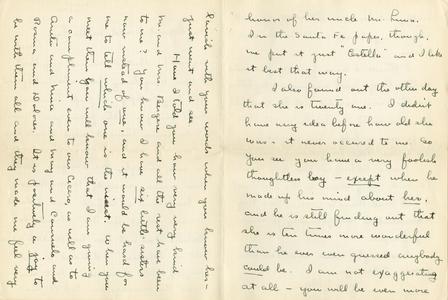 honor of her uncle Mr. Luna.
In the Santa Fe paper, though,
we put it just "Estella" and I like
it best that way.
I also found out the other day
that she is twenty one. I didn't
have any idea before how old she
was - it never occured to me. So
you see your hand a very foolish
thoughtless boy - except when he
made up his mind about her,
and he is still finding out that
she is ten times more wonderful
than he ever even guessed anybody
could be. I am not exaggerating
at all - you will be even more
with your words when you know her -
just wait and see.
Have I told you how very very kind
Mr. and Mrs. Bergere and all the rest have been
to me? You know I have six little sisters
now instead of one, and it would be hard for
me to tell which one is the nicest. When you
meet them you will know that I am giving
a compliment even to our Cicero, as well as to
Anita and Nina and May and Consuelo and
Ronnie and Dolores. It is positively a joy to
be with them all and they made me feel very